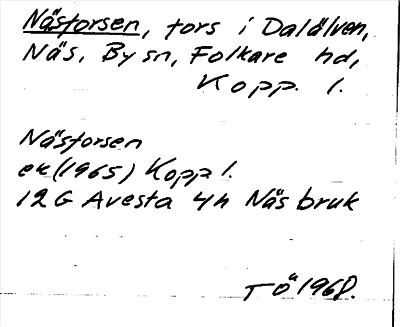 Näsforsen, fors i Dalälven,
Näs, By sn, Folkare hd,
Kopp. l.
Näsforsen
ek (1965) Kopp l.
12G Avesta 4h Näs bruk
TÖ 1968.